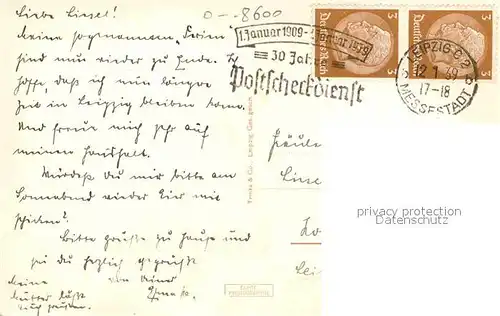 Liebe Liesel!
Meine sogenannten "Ferien"
sind nun wieder zu Ende. Ich
hoffe, daß ich nun längere
Zeit in Leipzig bleiben kann.
Und freue mich sehr auf
meinen Haushalt.
Würdest Du mir bitte am
Sonnabend wieder Eier mit
schicken?
Bitte grüße zu Hause und
sei du herzlich gegrüßt
von Deiner
Meine
Mutter läßt
auch grüßen.
0--8600
1. Januar 1909 - Januar 1939
30 Jahre
Postscheckdienst
3 Deutsches Reich
3 Deutsches Reich
LEIPZIG C 2
12.1.39
17-18
MESSESTADT
Trinks & Co., Leipzig. Ges. gesch.
Fräulein
Liese
privacy protection
Datenschutz